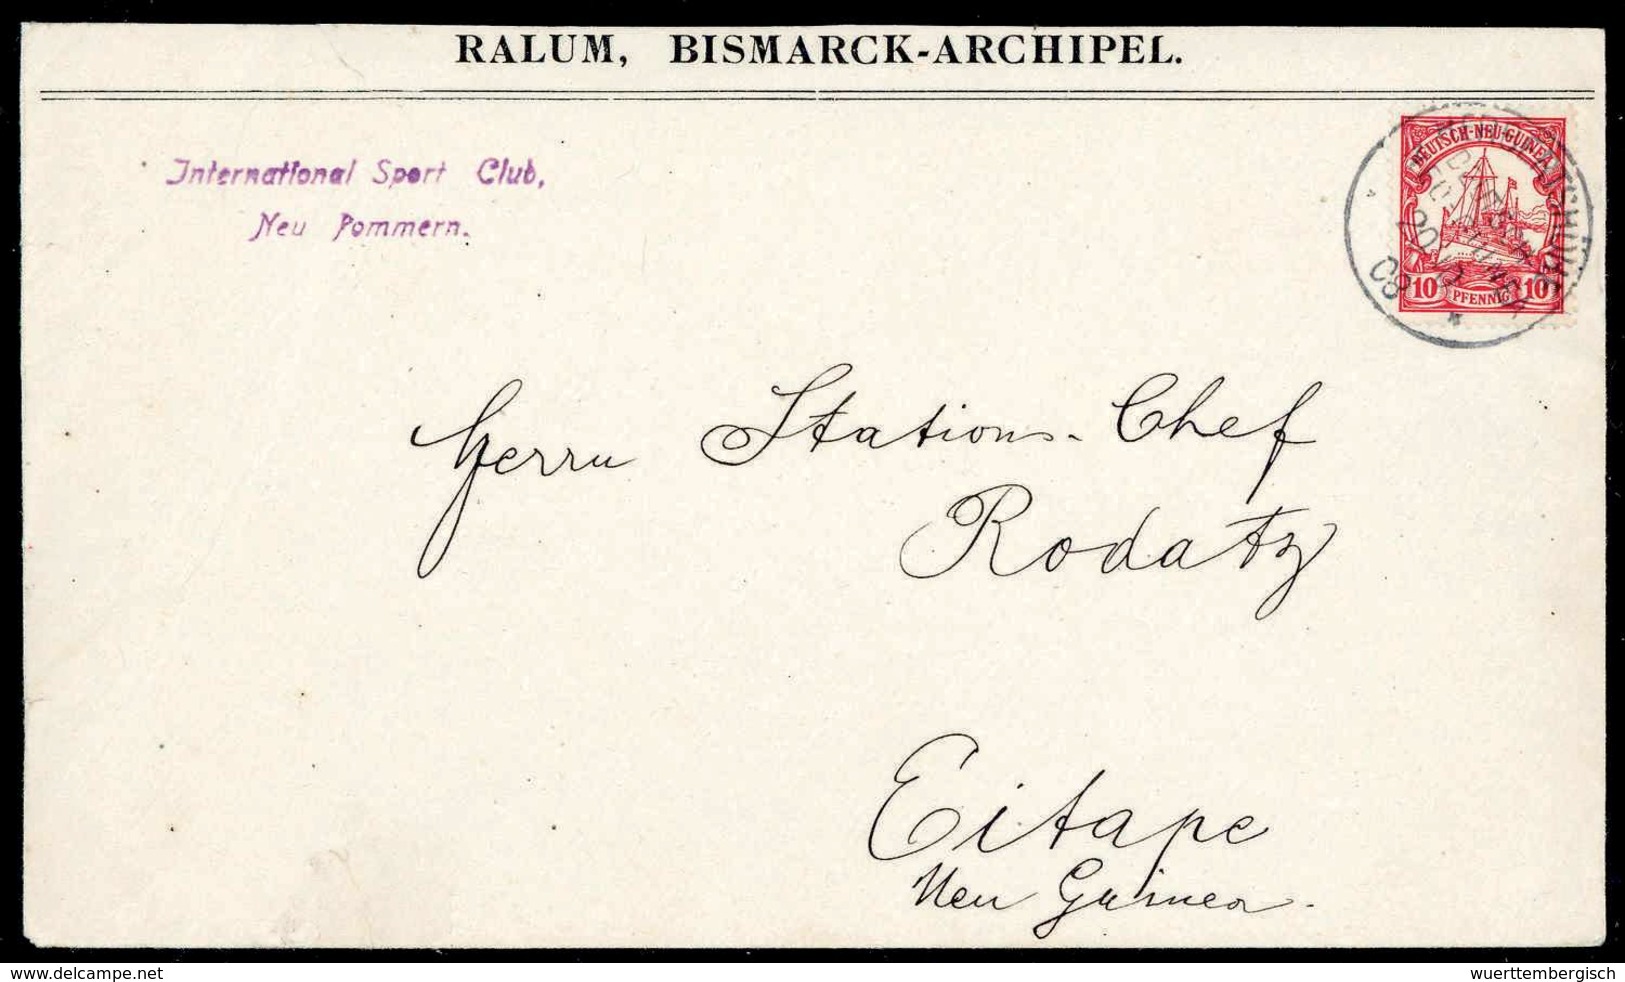 RALUM, BISMARCK-ARCHIPEL.
International Sport Club,
Neu Pommern.
DEUTSCH-NEU-GUINEA
10 PFENNIG 10
08
Herrn Stations-Chef
Rodatz
Eitape
Neu Guinea.
www.delcampe.net
wuerttembergisch